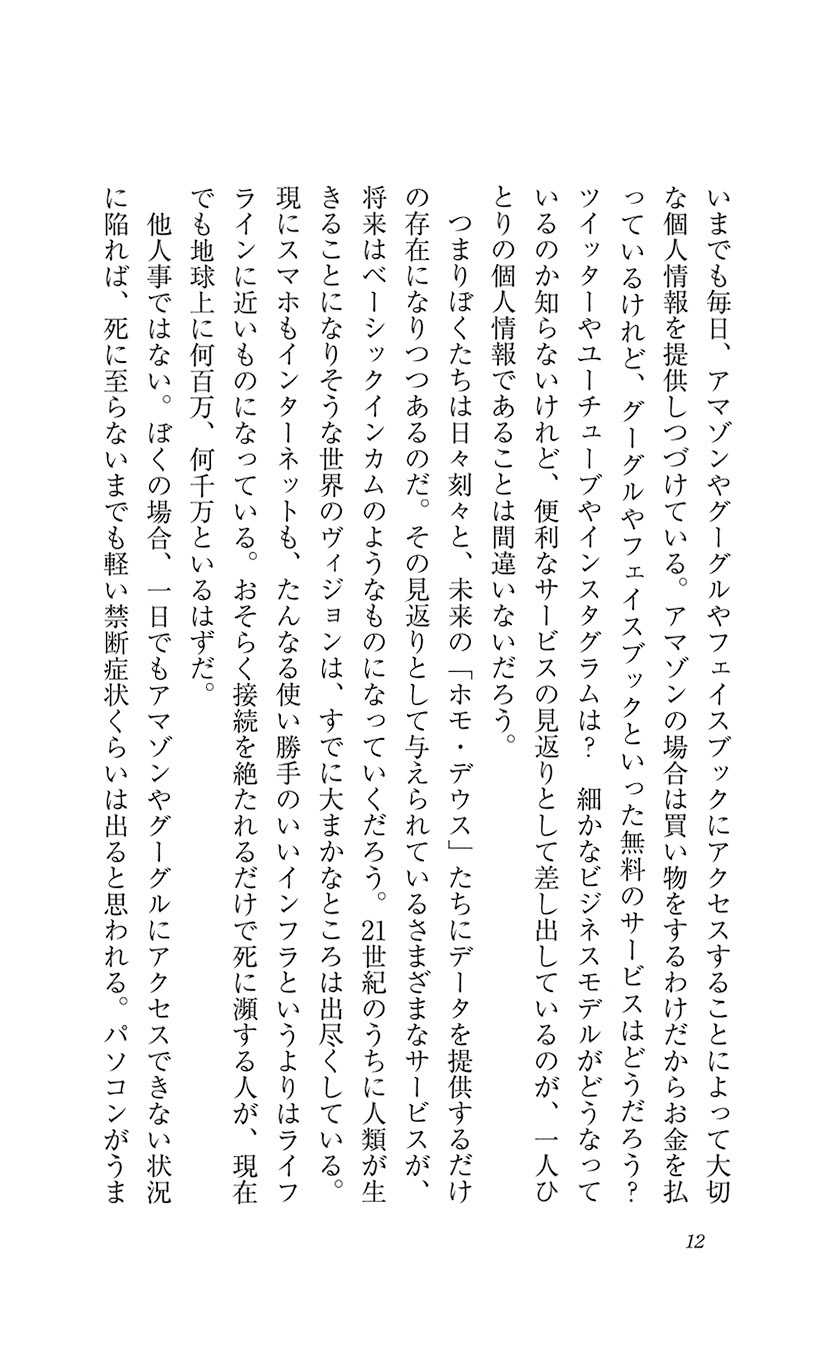 いまでも毎日、アマゾンやグーグルやフェイスブックにアクセスすることによって大切
な個人情報を提供しつづけている。アマゾンの場合は買い物をするわけだからお金を払
っているけれど、グーグルやフェイスブックといった無料のサービスはどうだろう？
ツイッターやユーチューブやインスタグラムは？　細かなビジネスモデルがどうなって
いるのか知らないけれど、便利なサービスの見返りとして差し出しているのが、一人ひ
とりの個人情報であることは間違いないだろう。
　つまりぼくたちは日々刻々と、未来の「ホモ・デウス」たちにデータを提供するだけ
の存在になりつつあるのだ。その見返りとして与えられているさまざまなサービスが、
将来はベーシックインカムのようなものになっていくだろう。21世紀のうちに人類が生
きることになりそうな世界のヴィジョンは、すでに大まかなところは出尽くしている。
現にスマホもインターネットも、たんなる使い勝手のいいインフラというよりはライフ
ラインに近いものになっている。おそらく接続を絶たれるだけで死に瀕する人が、現在
でも地球上に何百万、何千万といるはずだ。
　他人事ではない。ぼくの場合、一日でもアマゾンやグーグルにアクセスできない状況
に陥れば、死に至らないまでも軽い禁断症状くらいは出ると思われる。パソコンがうま
12